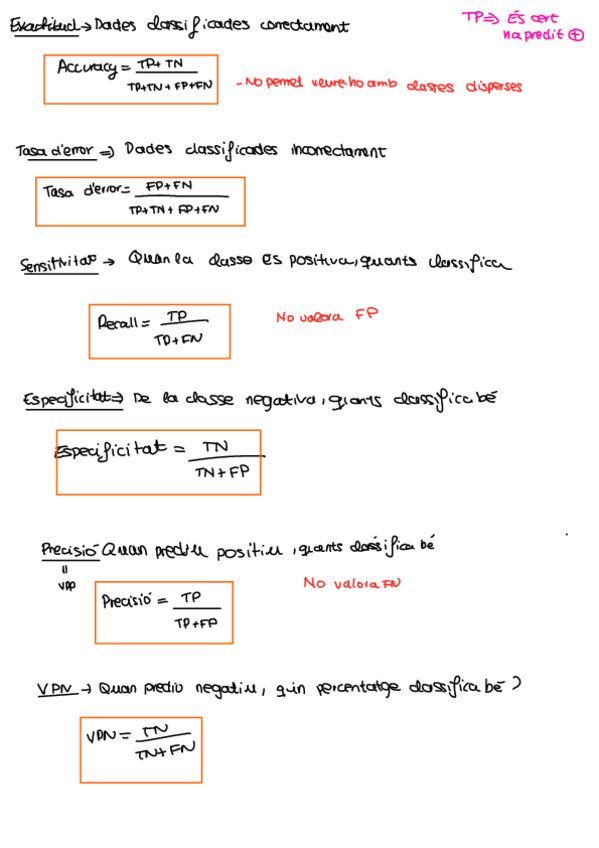 Exactitud → Dades classificades correctament
TP => És cert
ha predit ⊕
Accuracy = TP + TN / TP+TN + FP+FN
- No permet veure-ho amb classes disperses
Tasa d'error => Dades classificades incorrectament
Tasa d'error = FP+FN / TP+TN + FP+FN
Sensitivitat → Quan la classe es positiva, quants classifica
Recall = TP / TP+FN
No valora FP
Especificitat => De la classe negativa, quants classifica bé
Especificitat = TN / TN + FP
Precisió Quan prediu positiu, quants classifica bé
=
VPP
No valora FN
Precisió = TP / TP+FP
VPN → Quan prediu negatiu, quin percentatge classifica bé?
VPN = TN / TN+FN